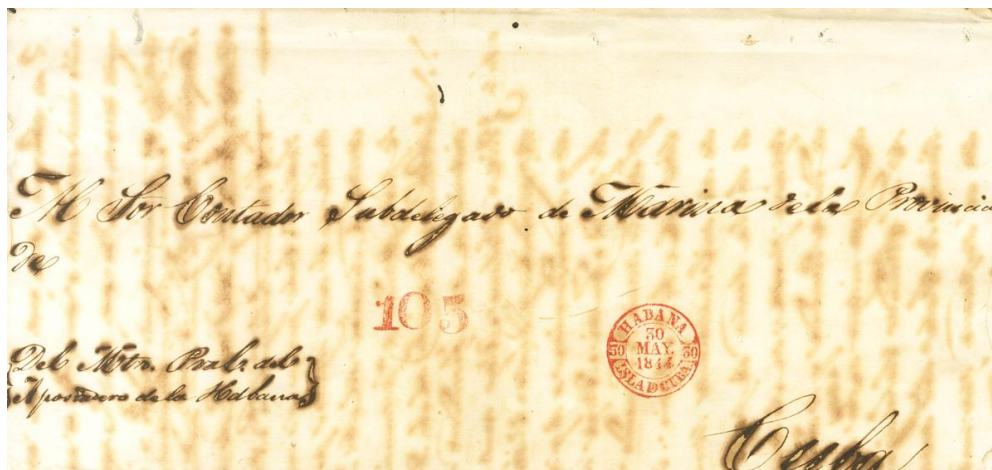 Al Sor Contador Subdelegado de Marina de la Provincia
de
105
HABANA
30
MAY.
1844
30 30
ISLA DE CUBA
Del Mtro. Pral. del
Apostadero de la Habana
Cuba